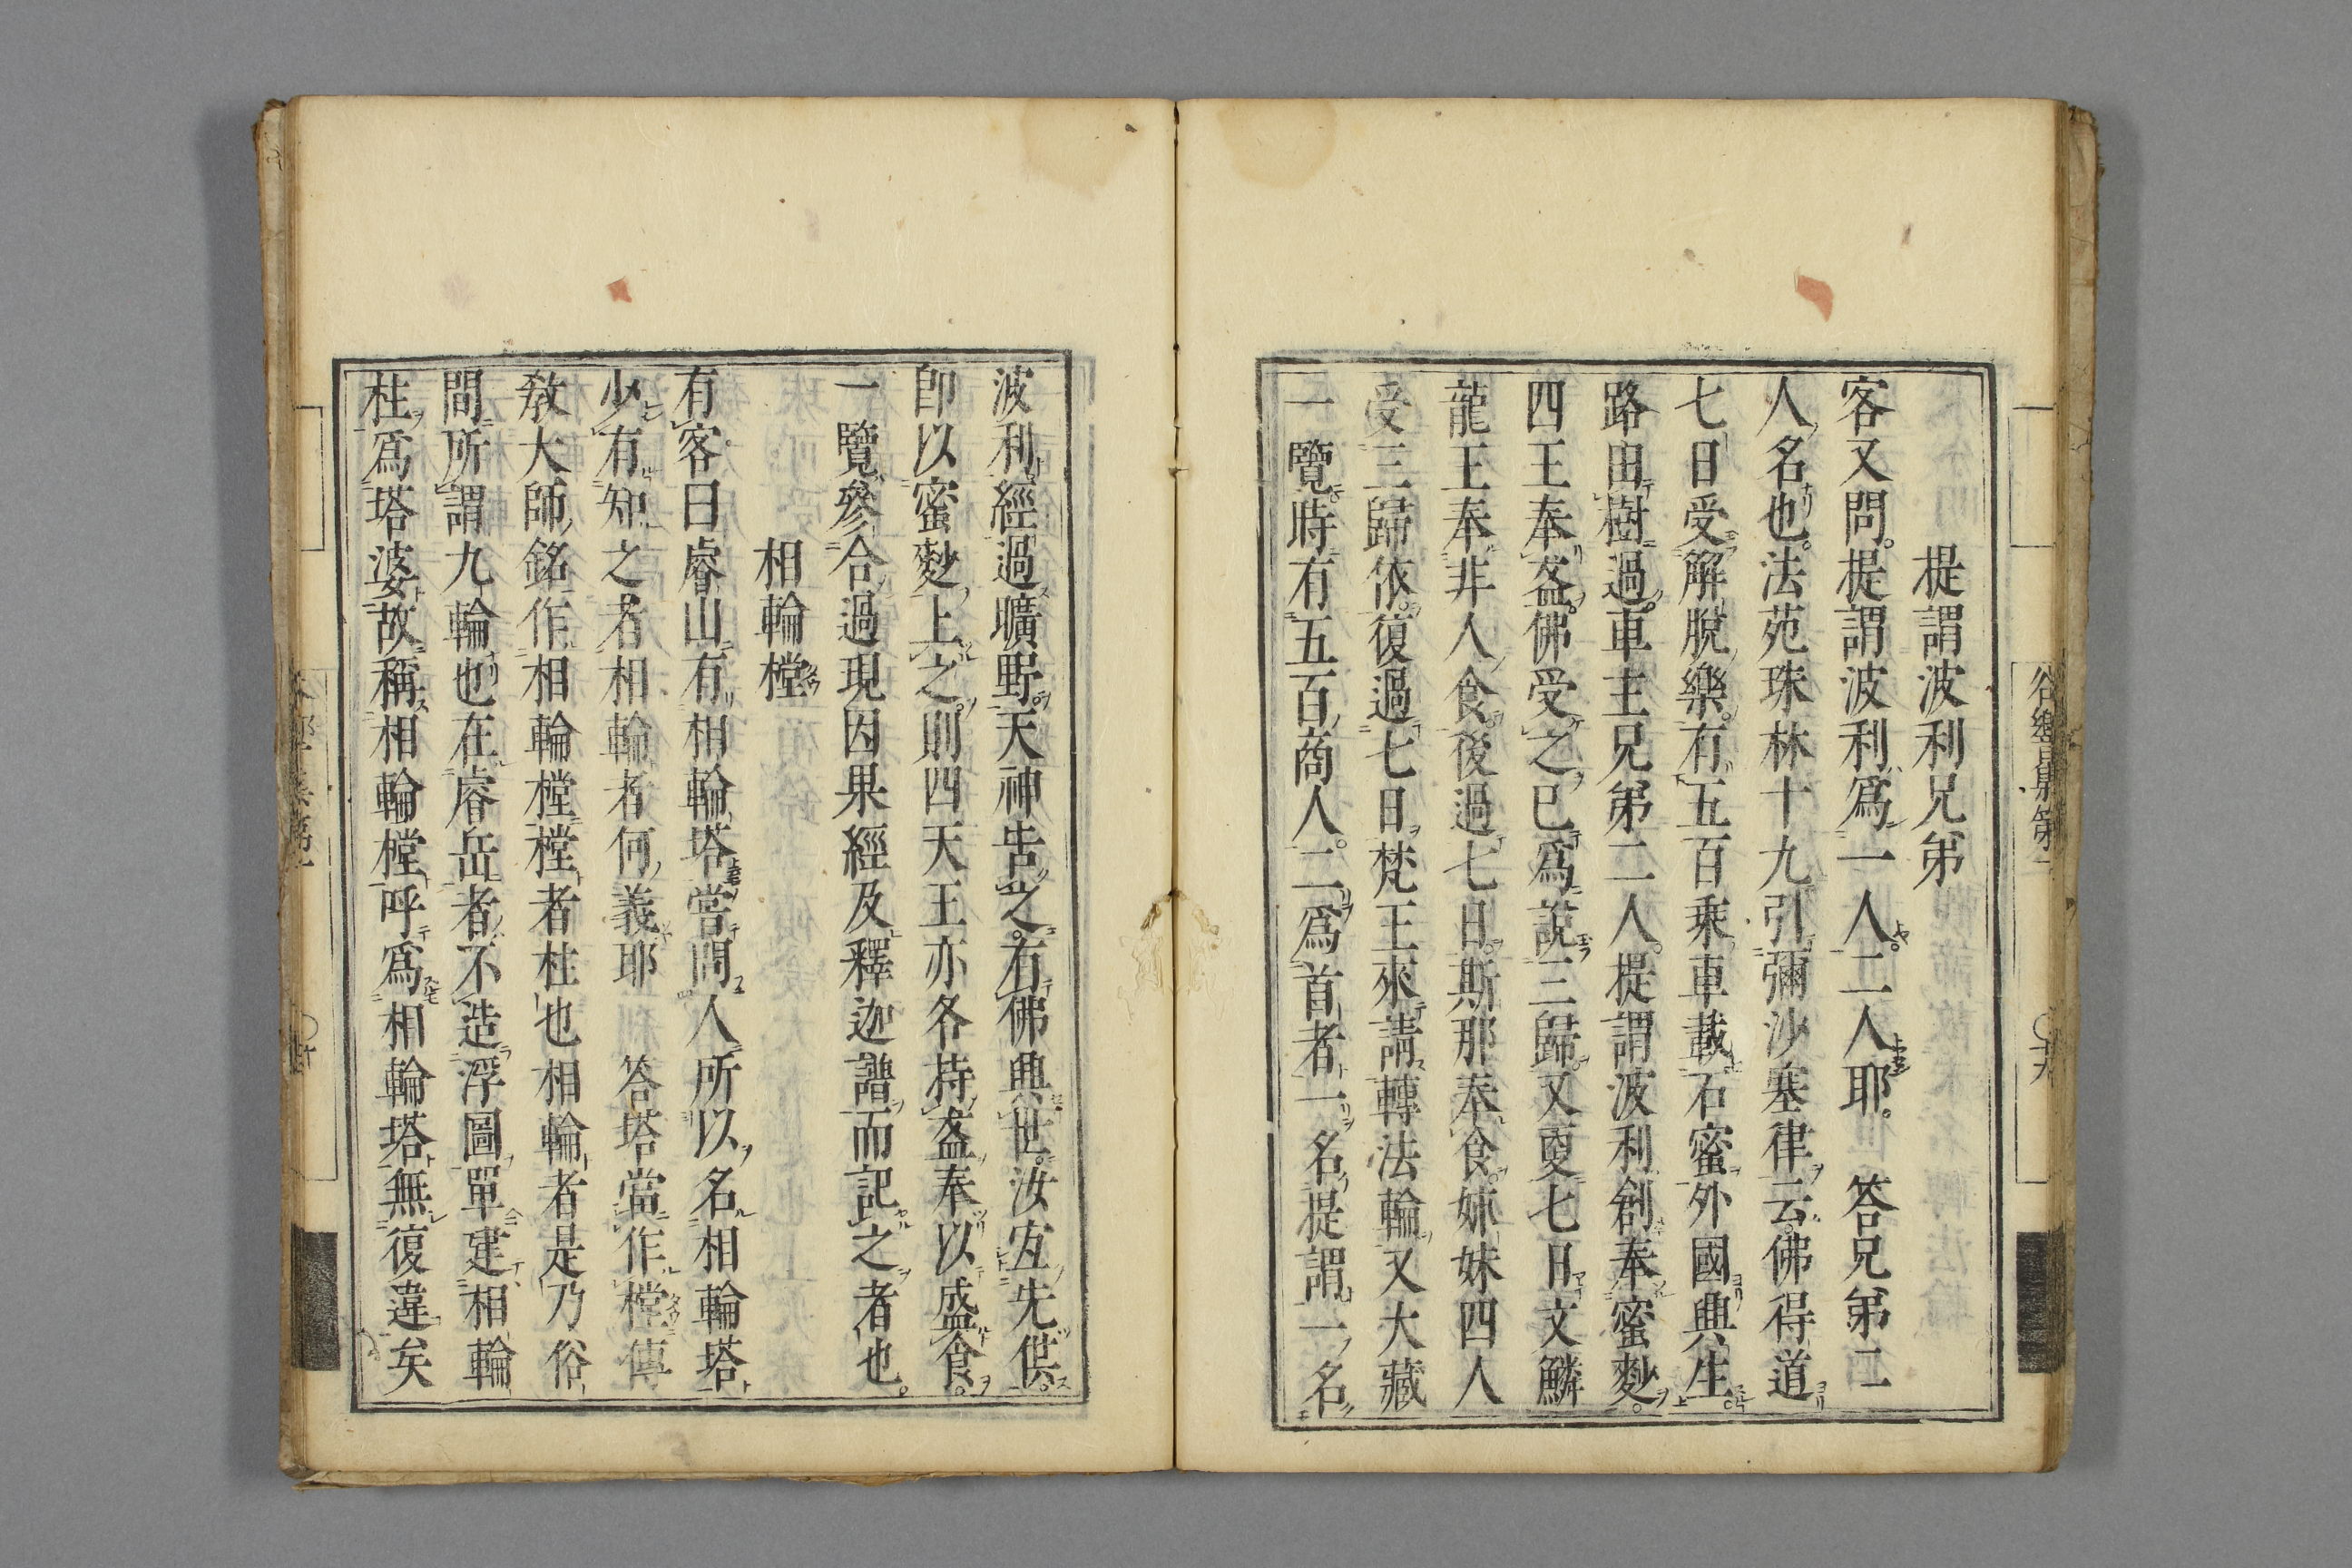 提謂波利兄弟
客又問。提謂波利爲一人。二人耶。答兄弟二
人名也。法苑珠林十九引彌沙塞律云。佛得道
七日受解脫樂。有五百乘車載石蜜外國興生
路由樹過。車主兄弟二人。提謂波利創奉蜜麨。
四王奉盋。佛受之已爲說三歸又更七日文鱗
龍王奉非人食。後過七日。斯那奉食姊妹四人
受三歸依。復過七日梵王來請轉法輪又大藏
一覽時有五百商人。二爲首者一名提謂一名
波利經過曠野。天神告之。有佛興世。汝宜先供。
卽以蜜麨上之。則四天王亦各持盋奉以盛食。
一覽參合過現因果經及釋迦譜而記之者也。
相輪橖
有客曰睿山有相輪塔嘗問人所以名相輪塔
少有知之者相輪者何義耶 答塔當作橖傳
敎大師銘作相輪橖橖者柱也相輪者是乃俗
間所謂九輪也在睿岳者不造浮圖單建相輪
柱爲塔婆故稱相輪橖呼爲相輪塔無復違矣